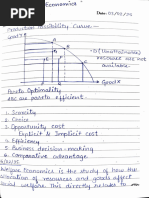 Economics
Date: 07/02/25
Production Possibility Curve :—
Good Y
D (Unattainable)
resources are not
available.
Good X
Pareto Optimality
ABC are pareto efficient.
1. Scarcity
2. Choice
3. Opportunity cost
Explicit & Implicit cost
5. Efficiency
Business decision-making
6. Comparative advantage
Welfare Economics is the study of how the
of resources and goods affect
social welfare. This directly relates to